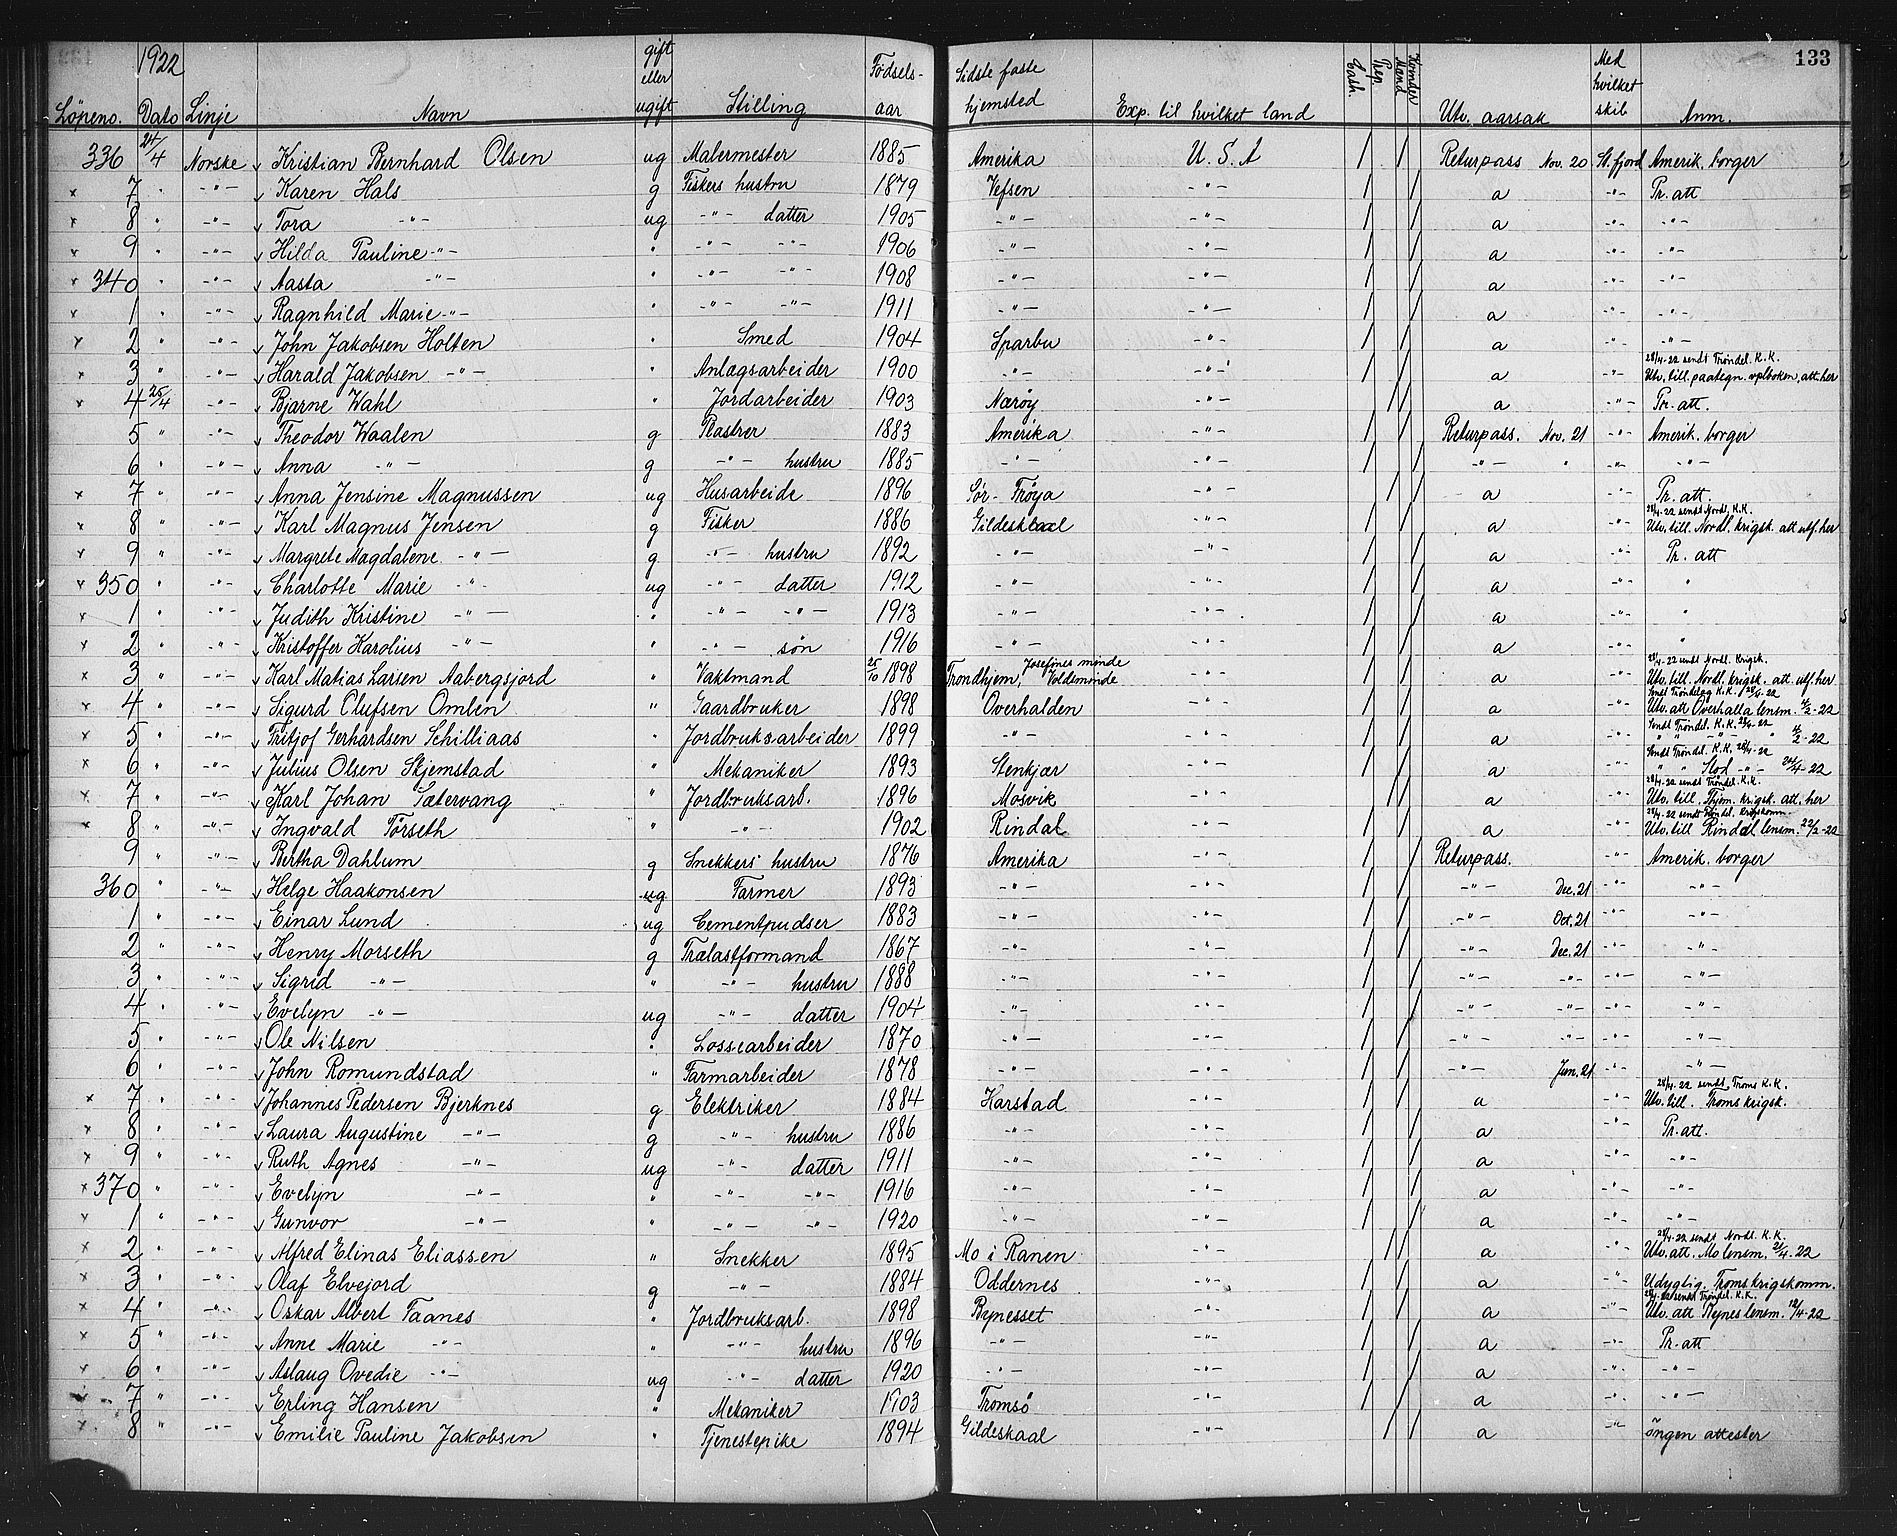 133
1922
Löpeno. Dato Linje Navn gift eller ugift Stilling Födsels-aar Sidste faste hjemsted Exp. til hvilket land Cash. Rep. Mænd Kvinder Utv. aarsak Med hvilket skib Anm.
336 24/4 Norske Kristian Bernhard Olsen ug Malermester 1885 Amerika U.S.A Returpass Nov. 20 St.fjord Amerik. borger
x 7 " -"- Karen Hals g Fiskers hustru 1879 Vefsen -"- a -"- Pr. att
x 8 " -"- Tora -"- ug -"- datter 1905 -"- -"- a -"- -"-
x 9 " -"- Hilda Pauline -"- " -"- -"- 1906 -"- -"- a -"- -"-
x 340 " -"- Aasta -"- " -"- -"- 1908 -"- -"- a -"- -"-
x 1 " -"- Ragnhild Marie -"- " -"- -"- 1911 -"- -"- a -"- -"-
x 2 " -"- John Jakobsen Holten " Smed 1904 Sparbu -"- a -"- -"-
28/4-22 sendt Tröndel. K.K.
x 3 " -"- Harald Jakobsen -"- " Anlægsarbeider 1900 -"- -"- a -"- Utv. till. paategn. vplboken, att. her
x 4 25/4 -"- Bjarne Wahl " Jordarbeider 1903 Nærøy -"- a -"- Pr. att.
5 " -"- Theodor Waalen g Plastrer 1883 Amerika -"- Returpass. Nov. 21 -"- Amerik. borger
6 " -"- Anna -"- g -"- hustru 1885 -"- -"- -"- " -"- -"-
x 7 " -"- Anna Jensine Magnussen ug Husarbeide 1896 Sör-Fröya -"- a -"- Pr. att.
28/4-22 sendt Nordl. K.K.
x 8 " -"- Karl Magnus Jensen g Fisker 1886 Gildeskaal -"- a -"- Utv. till. Nordl. krigsk. att utf. her
x 9 " -"- Margrete Magdalene -"- g -"- hustru 1892 -"- -"- a -"- Pr. att
x 350 " -"- Charlotte Marie -"- ug -"- datter 1912 -"- -"- a -"- "
x 1 " -"- Judith Kristine -"- " -"- -"- 1913 -"- -"- a -"- "
x 2 " -"- Kristoffer Karolius -"- " -"- sön 1916 -"- -"- a -"- "
Josefines minde 28/4-22 sendt Nordl. Krigsk.
x 3 " -"- Karl Matias Larsen Aabergsjord " Vaktmand 25/10 1898 Trondhjem, Voldsminde -"- a -"- Utv. till. Nordl. krigsk. att. utf. her
Sendt Tröndelag K.K. 28/4-22
x 4 " -"- Sigurd Olufsen Omlin " Gaardbruker 1898 Overhalden -"- a -"- Utv. att Overhalla lensm. 4/2-22
Sendt Tröndel. K.K. 28/4-22
x 5 " -"- Fritjof Gerhardsen Schilliaas " Jordbruksarbeider 1899 -"- -"- a -"- " " -"- " 4/2-22
Sendt Tröndel. K.K. 28/4-22
x 6 " -"- Julius Olsen Skjemstad " Mekaniker 1893 Stenkjær -"- a -"- " " Stod -"- 24/4-22
28/4-22 sendt Tröndel. K.K.
x 7 " -"- Karl Johan Sætervang " Jordbruksarb. 1896 Mosvik -"- a -"- Utv. till. Thjem. krigsk. att. her
28/4-22 sendt Tröndel. krigskomm.
x 8 " -"- Ingvald Törseth " -"- 1902 Rindal -"- a -"- Utv. till Rindal lensm. 22/2-22
9 " -"- Bertha Dahlum g Snekkers hustru 1876 Amerika -"- Returpass. -"- Amerik. borger
360 " -"- Helge Haakonsen ug Farmer 1893 -"- -"- -"- Dec. 21 -"- -"-
1 " -"- Einar Lund ug Cementpudser 1883 -"- -"- -"- Oct. 21 -"- -"-
2 " -"- Henry Morseth g Trælastformand 1867 -"- -"- -"- Dec. 21 -"- -"-
3 " -"- Sigrid -"- " -"- hustru 1888 -"- -"- -"- -"- -"- -"-
4 " -"- Evelyn -"- ug -"- datter 1904 -"- -"- -"- -"- -"- -"-
5 " -"- Ole Nilsen " Lossearbeider 1870 -"- -"- -"- -"- -"- -"-
6 " -"- John Romundstad " Farmarbeider 1878 -"- -"- -"- Jun. 21 -"- -"-
28/4-22 sendt Troms K.K.
x 7 " -"- Johannes Pedersen Bjerknes g Elektriker 1884 Harstad -"- a -"- Utv. till. Troms krigsk.
x 8 " -"- Laura Augustine -"- g -"- hustru 1886 -"- -"- a -"- Pr. att.
x 9 " -"- Ruth Agnes -"- ug -"- datter 1911 -"- -"- a -"- -"-
x 370 " -"- Evelyn -"- " -"- -"- 1916 -"- -"- a -"- -"-
x 1 " -"- Gunvor -"- " -"- -"- 1920 -"- -"- a -"- -"-
28/4-22 sendt Nordl. K.K.
x 2 " -"- Alfred Elinas Eliassen " Snekker 1895 Mo i Ranen -"- a -"- Utv. att. Mo lensm. 21/4-22
x 3 " -"- Olaf Elvejord g -"- 1884 Oddernes -"- a -"- Udygtig. Troms krigskomm.
28/4-22 sendt Tröndel. K.K.
x 4 " -"- Oskar Albert Faanes " Jordbruksarb. 1898 Bynesset -"- a -"- Utv. att Bynes lensm. 12/4-22
x 5 " -"- Anne Marie -"- " -"- hustru 1896 -"- -"- a -"- Pr. att
x 6 " -"- Aslaug Ovedie -"- ug -"- datter 1920 -"- -"- a -"- -"-
x 7 " -"- Erling Hansen " Mekaniker 1903 Tromsö -"- a -"-
x 8 " -"- Emilie Pauline Jakobsen " Tjenestepike 1894 Gildeskaal -"- a -"- Ingen attester